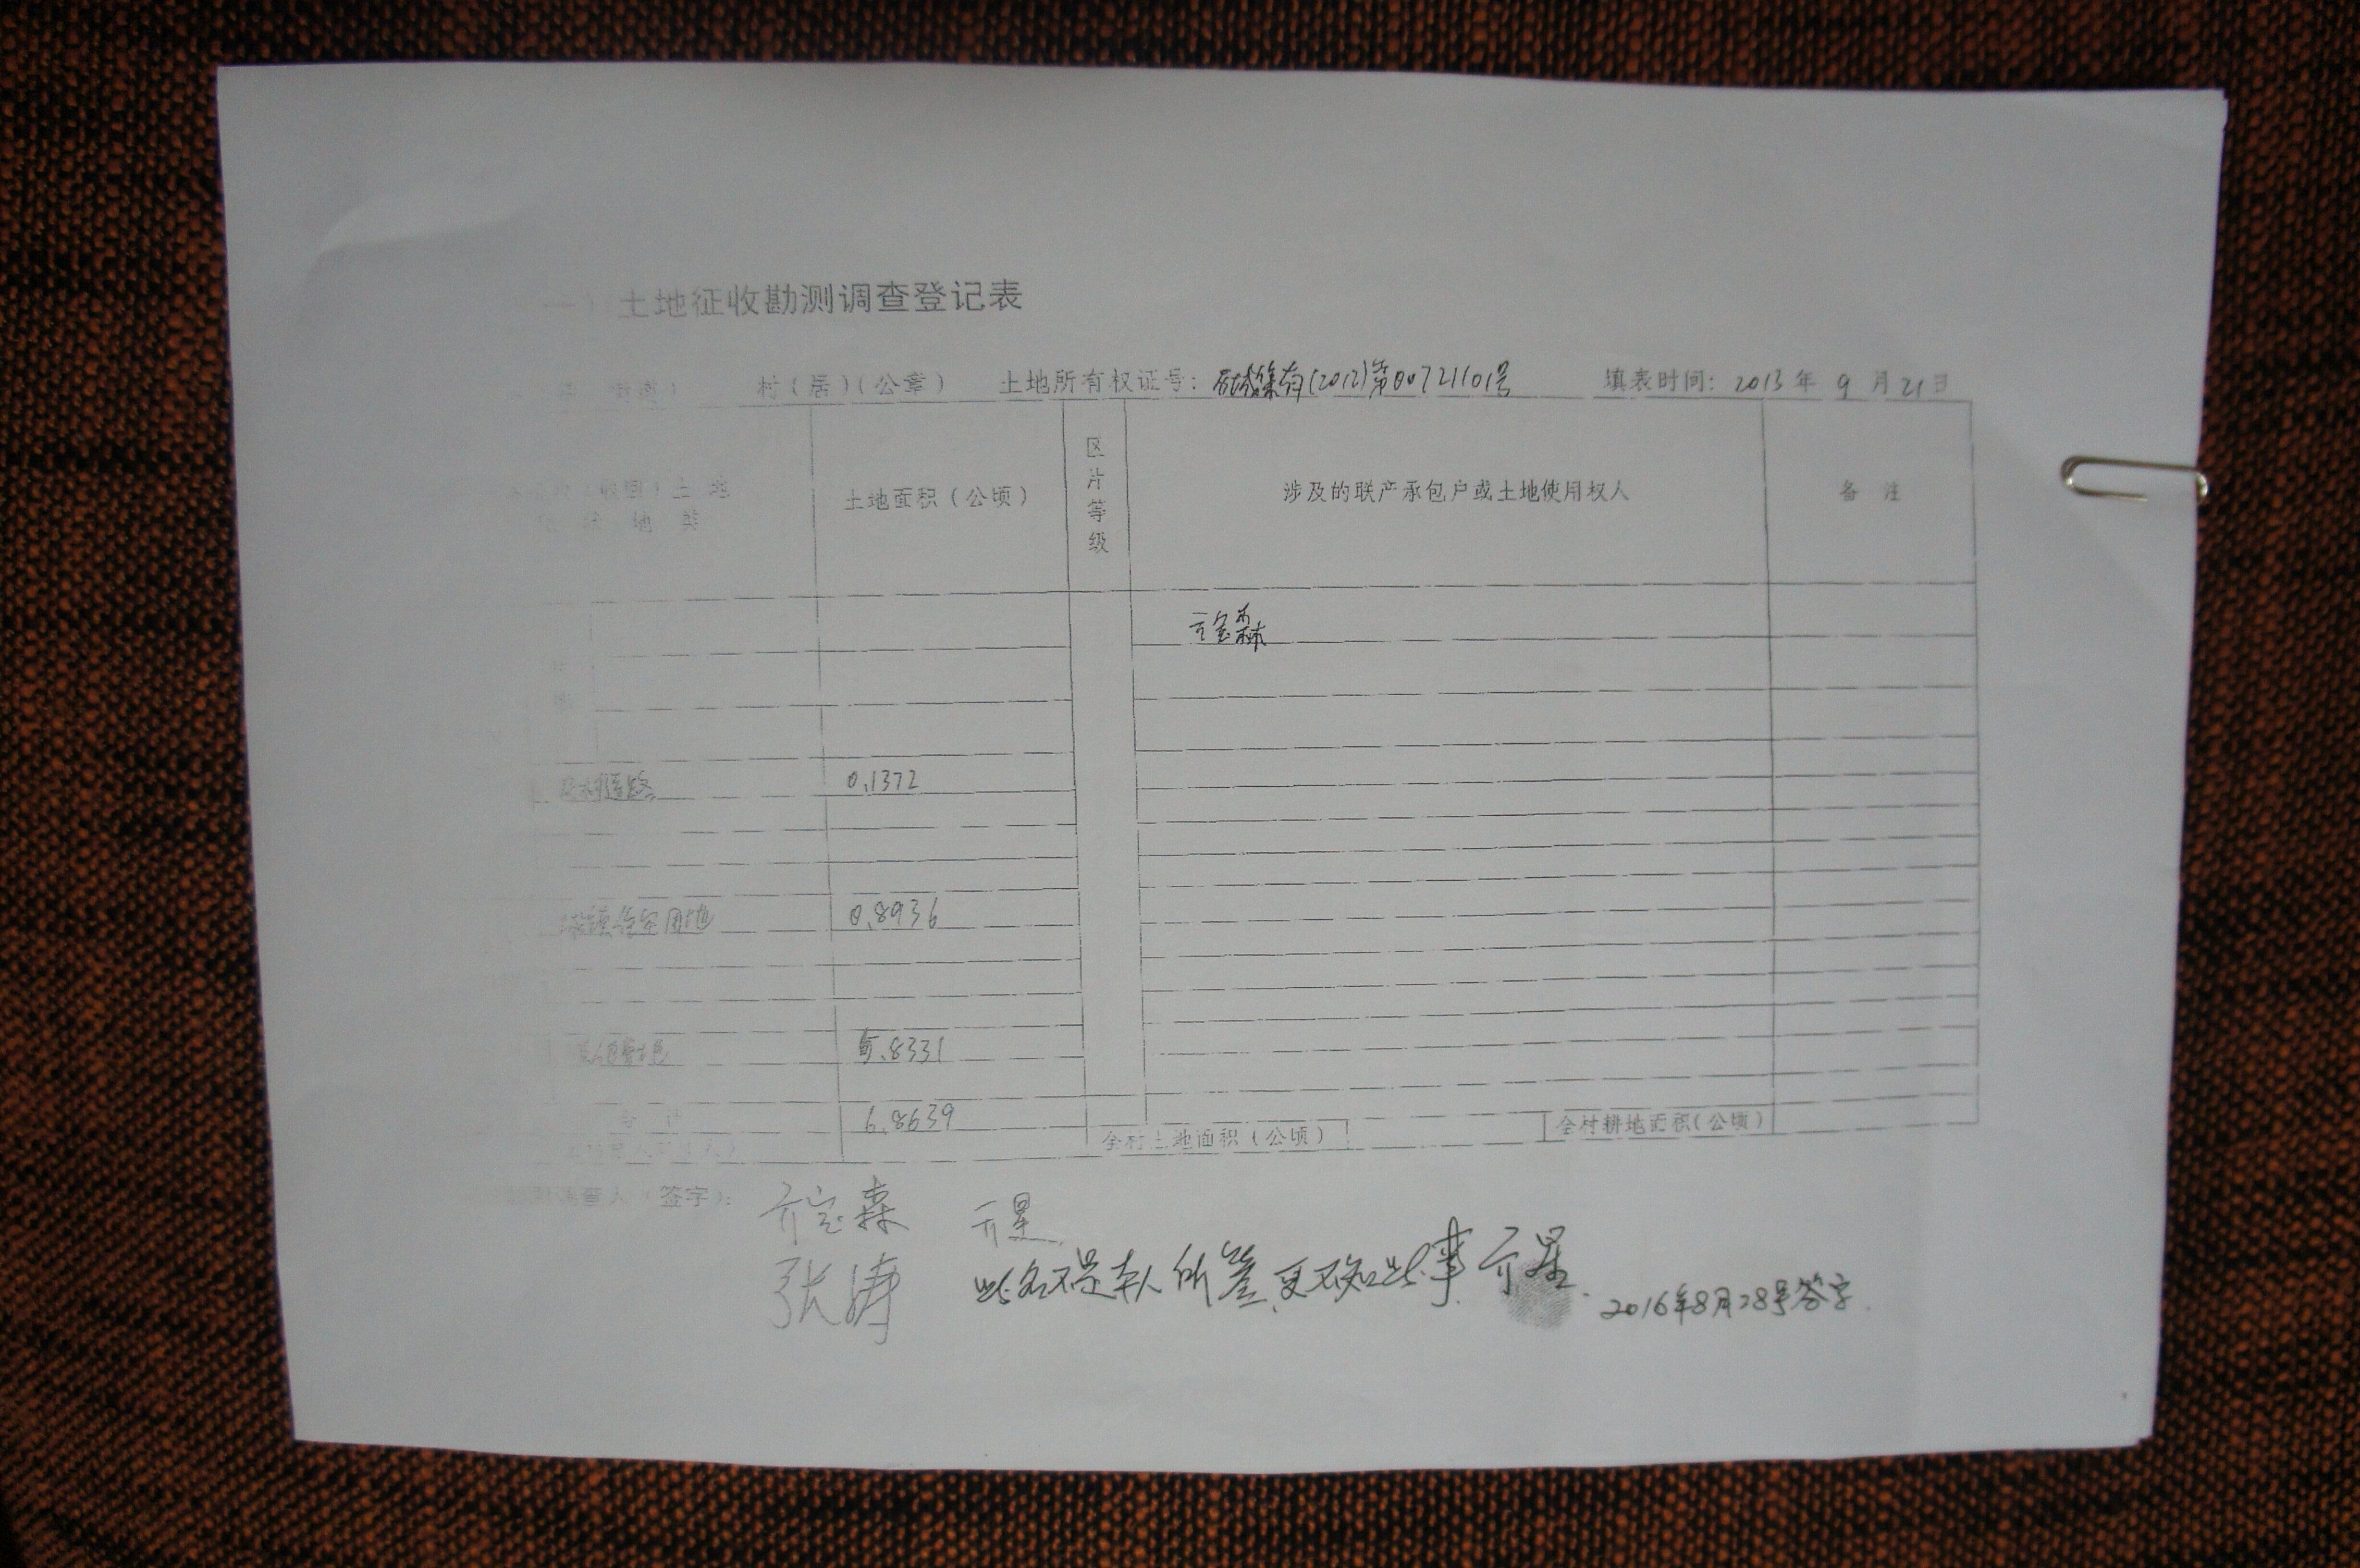 一）土地征收勘测调查登记表
村（居）（公章） 土地所有权证号： 集有(2012)第00721101号 填表时间：2013年9月21日
（收回）土地
地类
土地面积（公顷）
区片等级
涉及的联产承包户或土地使用权人
备注
亓宝森
农村道路 0.1372
城镇住宅用地 0.8936
5.8331
合计 6.8639
全村土地面积（公顷） 全村耕地面积（公顷）
调查人（签字）： 亓宝森 亓星
张涛 此名不是本人所签，更不知此事 亓星 2016年8月28号签字